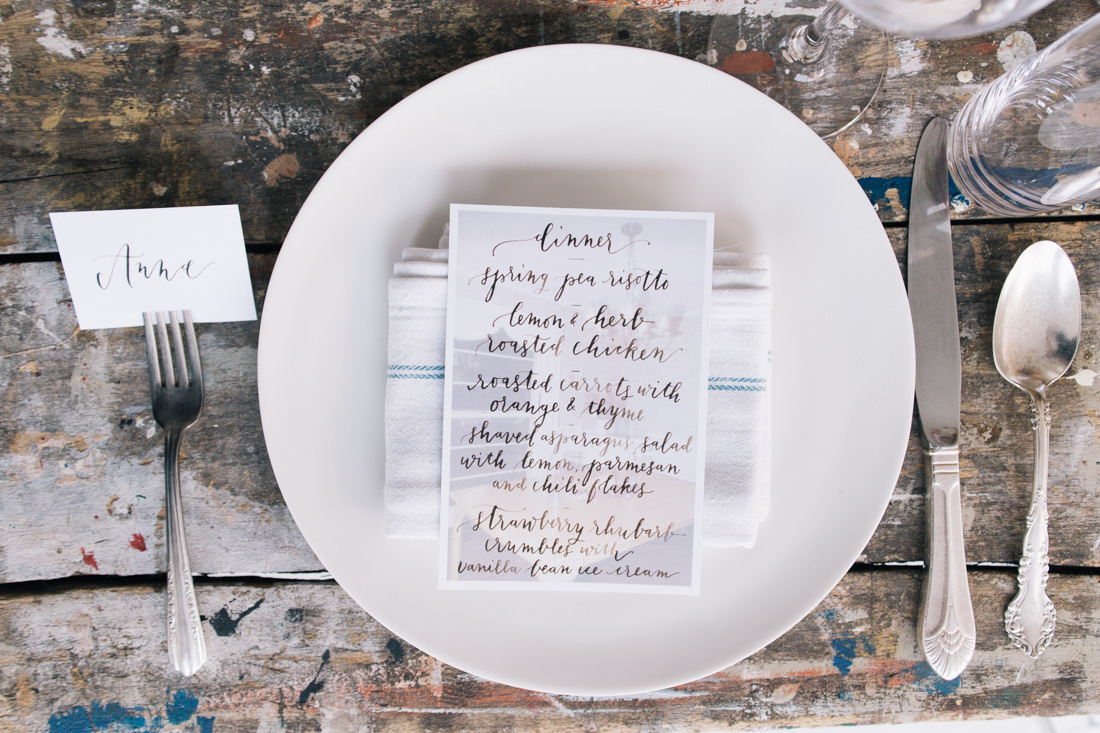 Anna
dinner
spring pea risotto
lemon & herb
roasted chicken
roasted carrots with
orange & thyme
shaved asparagus salad
with lemon, parmesan
and chili flakes
strawberry rhubarb
crumbles with
vanilla bean ice cream